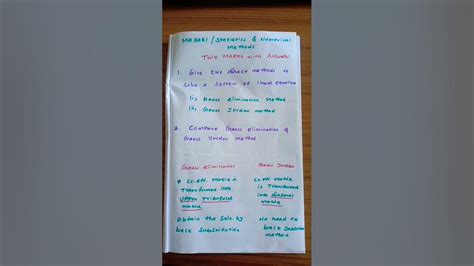 MA3251 / Statistics & Numerical
Methods
Two Marks with Answers
1. Give two direct methods to
solve a system of linear equation
(i) Gauss elimination method
(ii) Gauss Jordan method
2. Compare Gauss elimination &
Gauss Jordan method
Gauss elimination
* Co.eff. Matrix is
transformed into
upper triangular
matrix
Obtain the soln. by
back substitution
Gauss Jordan
Co.eff. Matrix
is transformed
into diagonal
matrix
No need to
back substitution
method